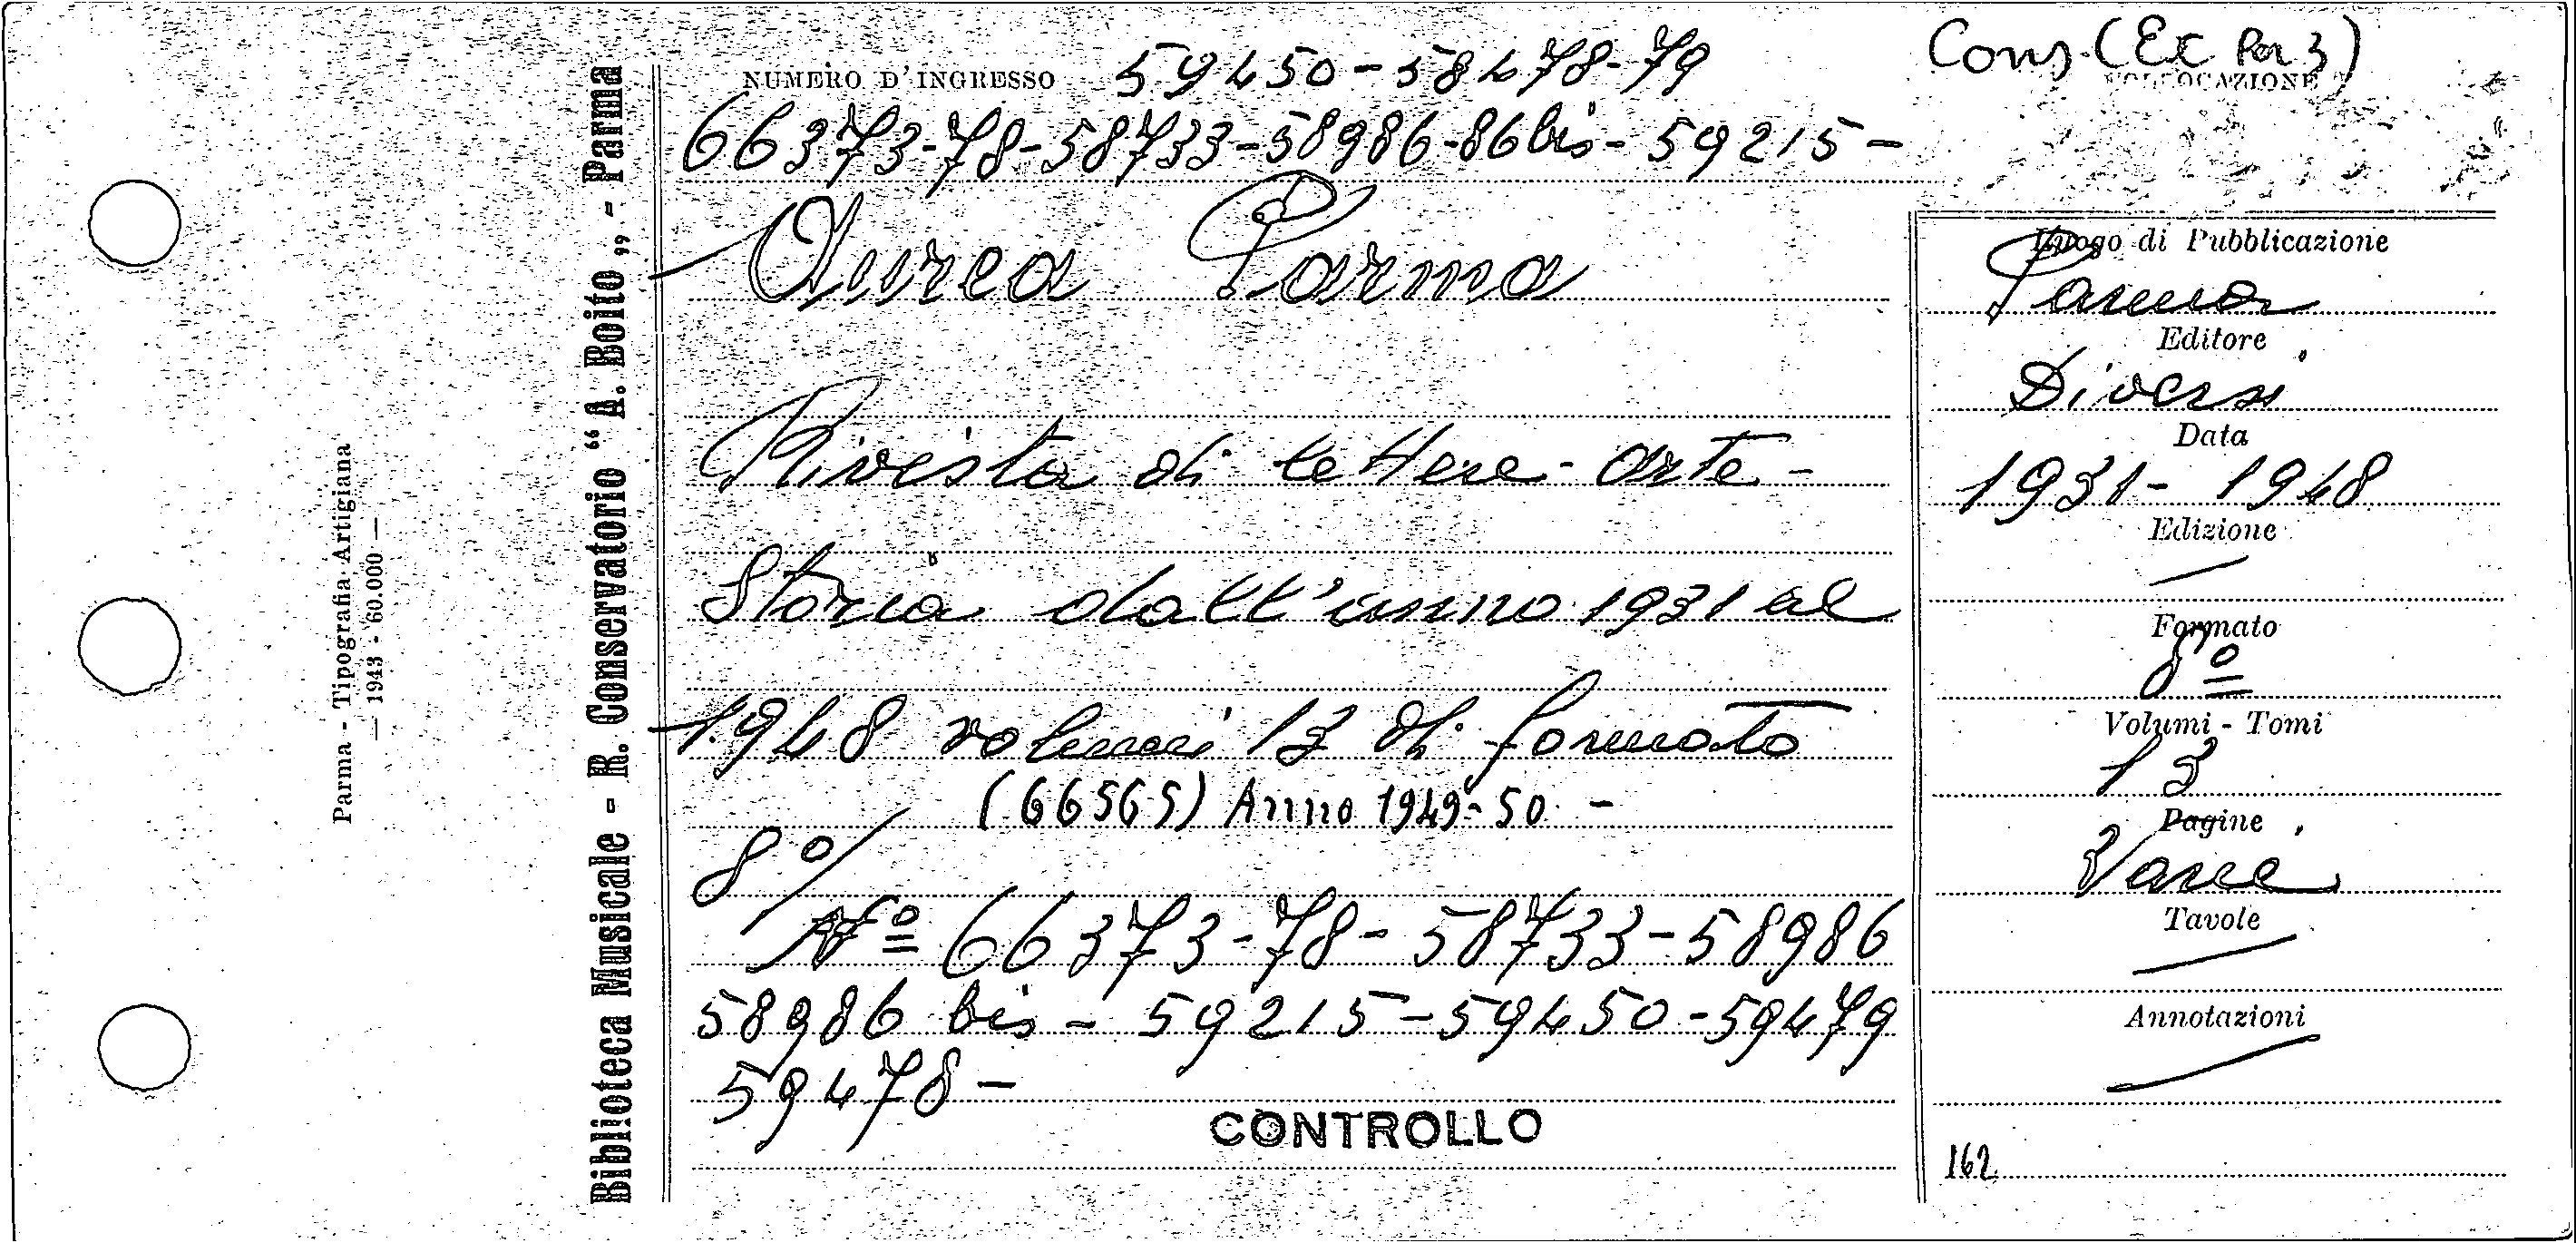 Parma - Tipografia Artigiana
— 1943 - 60.000 —
Biblioteca Musicale - R. Conservatorio “ A. Boito „ - Parma
NUMERO D'INGRESSO 59450-58478-79
66373-78-58733-58986-86bis-59215-
Aurea Parma
Rivista di lettere-arte-
Storia dall'anno 1931 al
1948 volumi 13 di formato
(66565) Anno 1949-50 -
8°/
N° 66373-78-58733-58986
58986 bis - 59215-59450-59479
59478-
CONTROLLO
Cons. (Ex Per 3)
COLLOCAZIONE
Luogo di Pubblicazione
Parma
Editore
Diversi
Data
1931-1948
Edizione
Formato
8°
Volumi - Tomi
13
Pagine
Varie
Tavole
Annotazioni
162